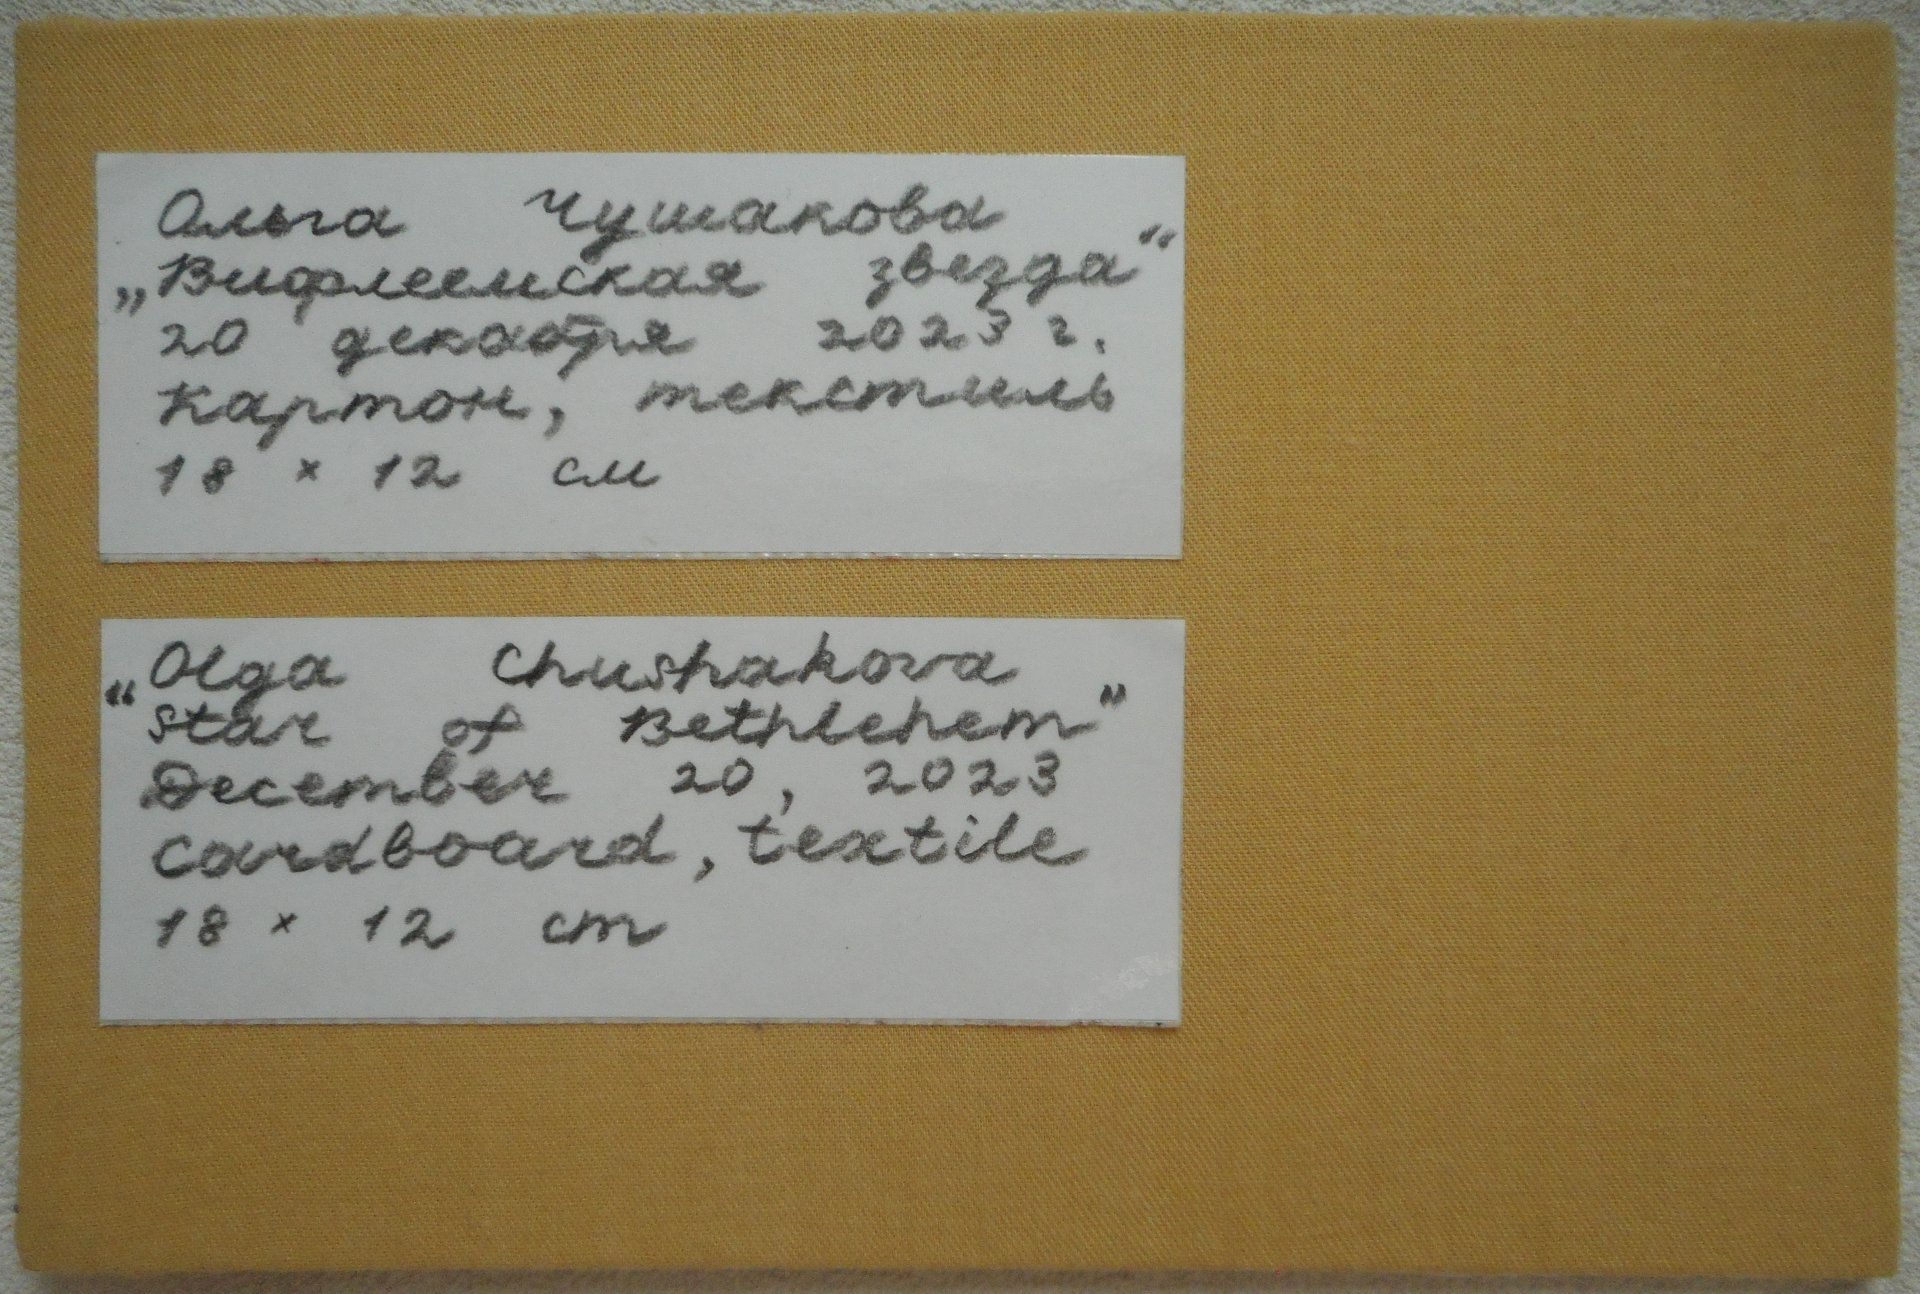 Ольга Чушакова
„Вифлеемская звезда“
20 декабря 2023 г.
картон, текстиль
18 × 12 см
Olga Chushakova
“Star of Bethlehem”
December 20, 2023
cardboard, textile
18 × 12 cm